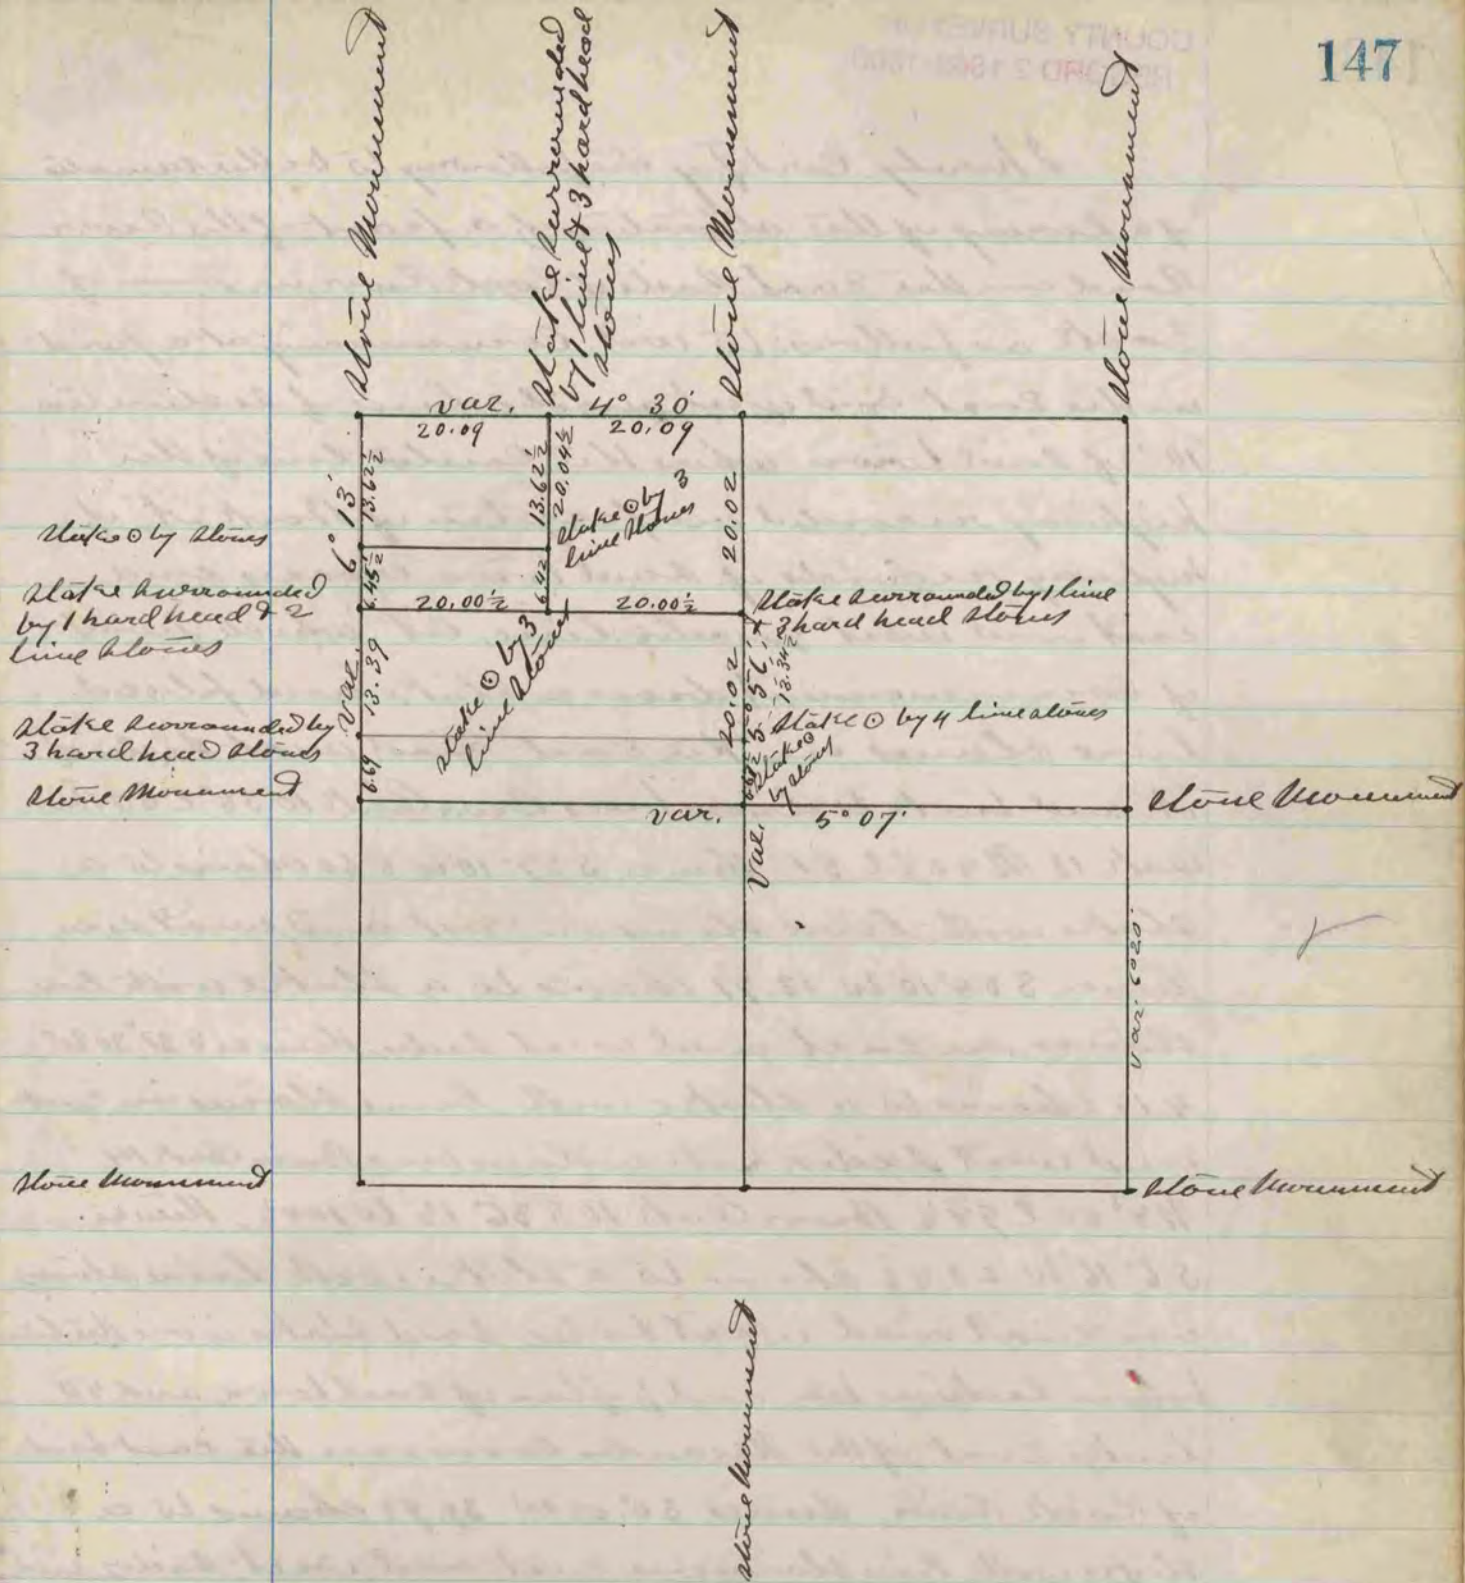 147
Stone Monument
Stake surrounded
by 1 lime & 3 hard head
stones
Stone Monument
Stone Monument
var. 4° 30'
20.09 20.09
13.62½
13.62½
20.04½
20.02
6° 13'
Stake ⊙ by stones
Stake ⊙ by 3
lime stones
6.45½
6.42
Stake surrounded
by 1 hard head & 2
lime stones
20.00½ 20.00½
Stake surrounded by 1 lime
& 3 hard head stones
Var.
13.39
Stake ⊙ by 3
lime stones
20.02
5° 56'
13.34½
Stake surrounded by
3 hard head stones
Stake ⊙ by 4 lime stones
Stake ⊙
by stones
6.69
Stone Monument
Stone Monument
var. 5° 07'
Var.
Var. 6° 20'
Stone Monument
Stone Monument
Stone Monument